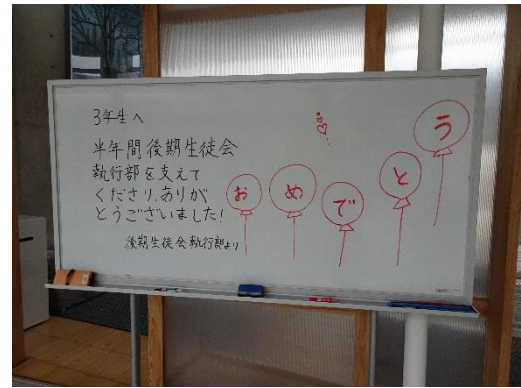 3年生へ
半年間後期生徒会
執行部を支えて
くださり、ありが
とうございました!
後期生徒会執行部より
おめでとう